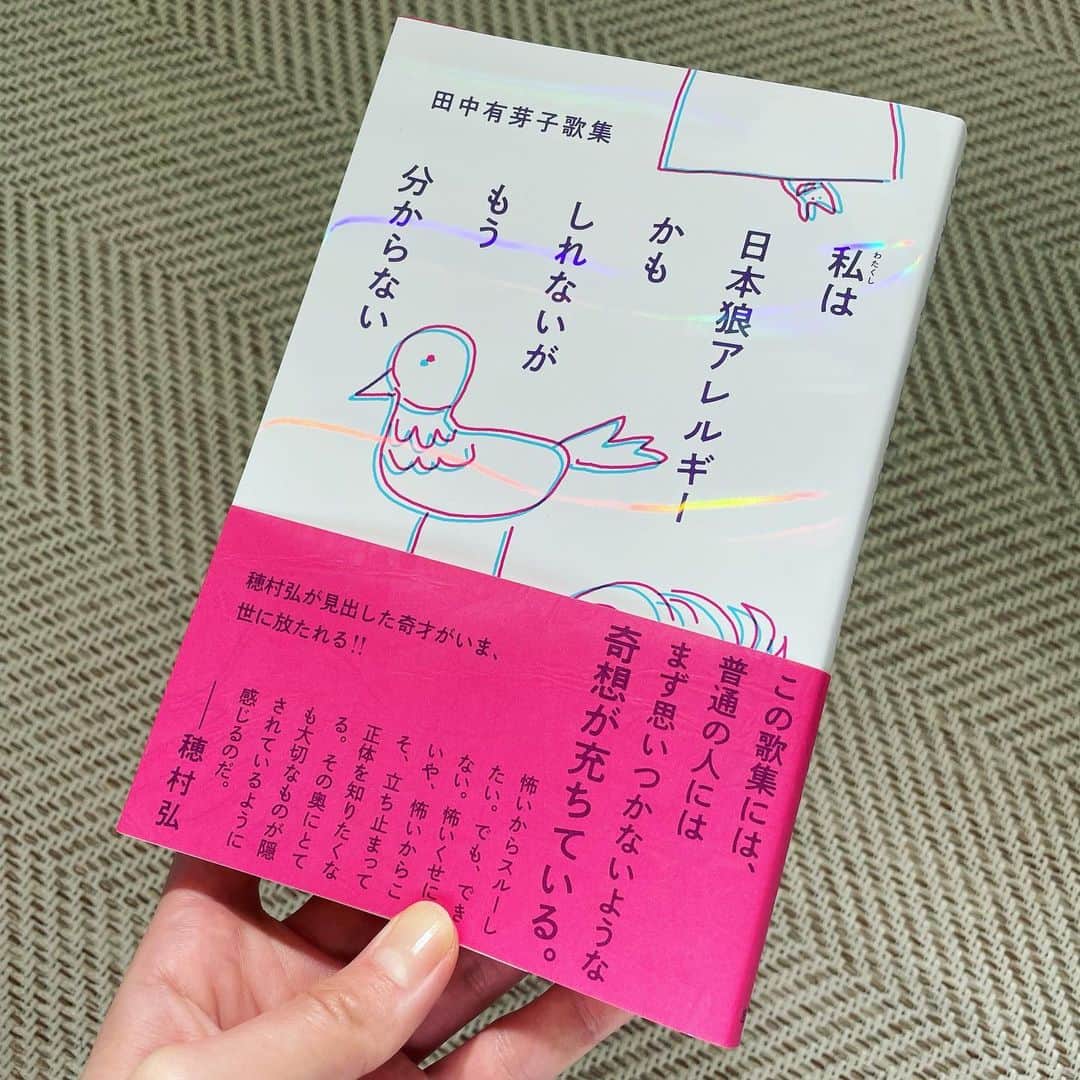 田中有芽子歌集
私は
わたくし
日本狼アレルギー
かも
しれないが
もう
分からない
穂村弘が見出した奇才がいま、
世に放たれる!!
この歌集には、
普通の人には
まず思いつかないような
奇想が充ちている。
怖いからスルーし
たい。でも、でき
ない。怖いくせに
いや、怖いからこ
そ、立ち止まって
正体を知りたくな
る。その奥にとて
も大切なものが隠
されているように
感じるのだ。
――穂村弘